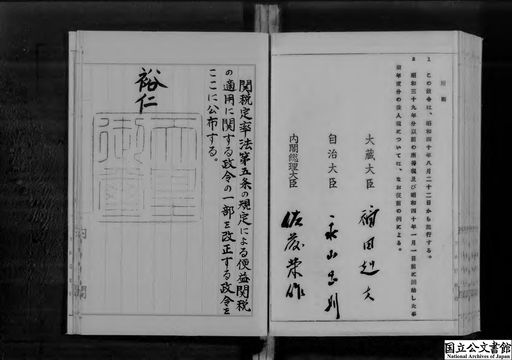 附則
1 この政令は、昭和四十年八月二十二日から施行する。
2 昭和三十九年分以前の所得税及び昭和四十年一月一日前に開始した事
業年度分の法人税については、なお従前の例による。
大蔵大臣 福田赳夫
自治大臣 永山忠則
内閣総理大臣 佐藤栄作
関税定率法第五条の規定による便益関税
の適用に関する政令の一部を改正する政令を
ここに公布する。
裕仁
天皇
御璽
国立公文書館
National Archives of Japan